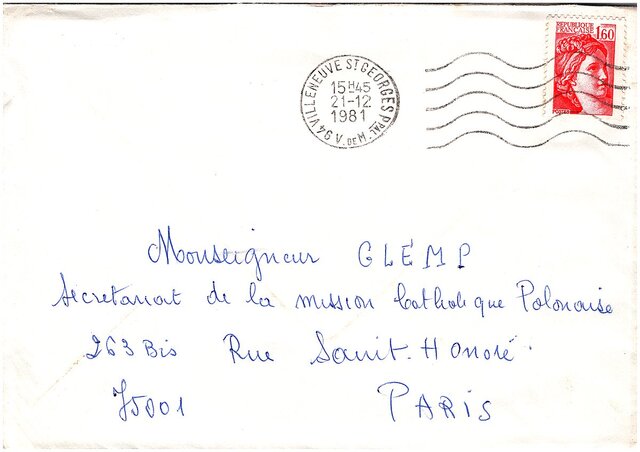 REPUBLIQUE
FRANÇAISE
1,60
POSTES
94 VILLENEUVE ST GEORGES PPAL
15H45
21-12
1981
V. DE M.
Monseigneur GLEMP
Secretariat de la mission Catholique Polonaise
263 Bis Rue Saint-Honoré
75001 PARIS